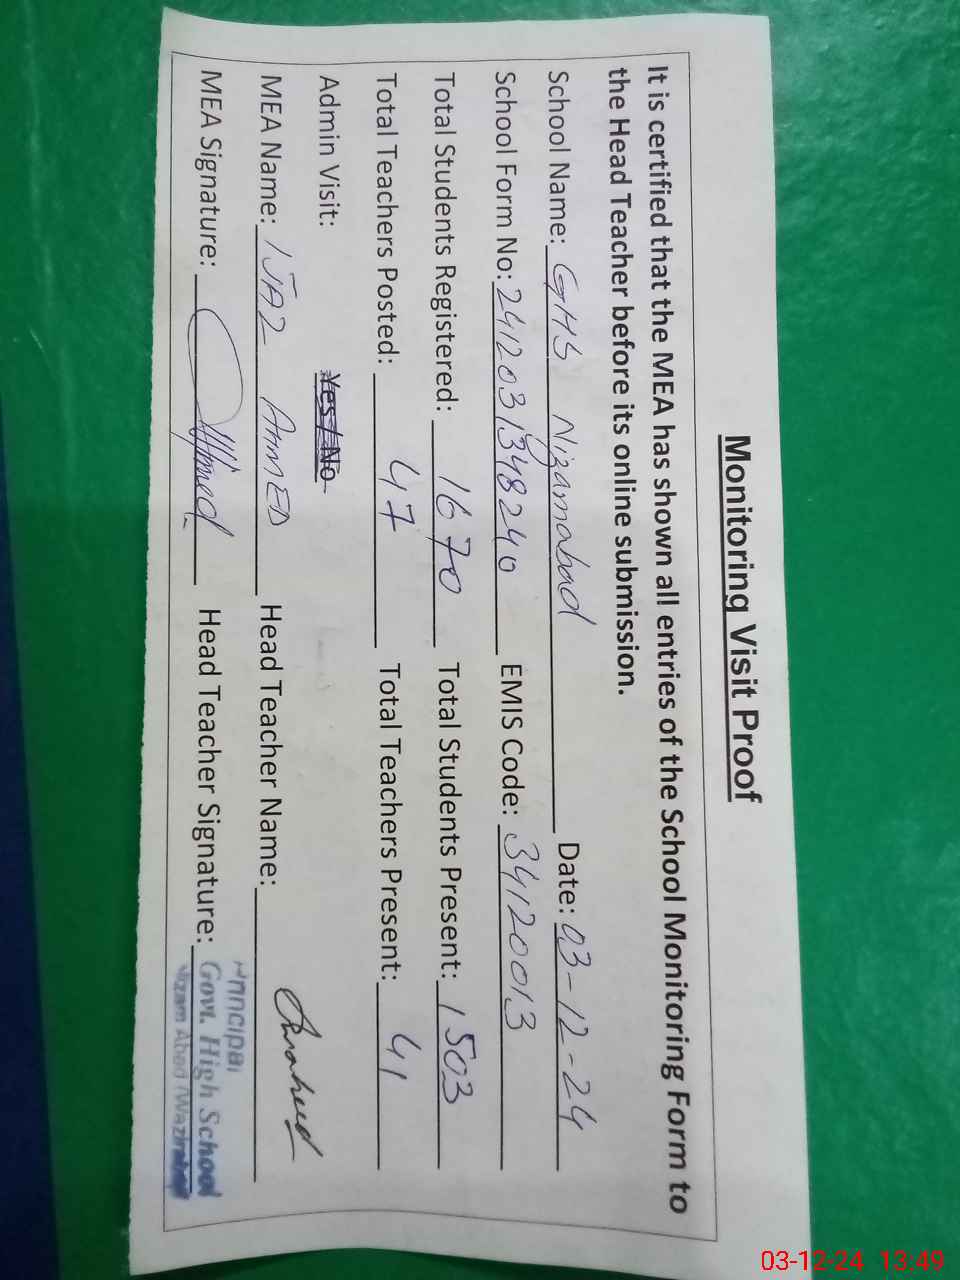 Monitoring Visit Proof
It is certified that the MEA has shown all entries of the School Monitoring Form to
the Head Teacher before its online submission.
School Name: GHS Nizamabad Date: 03-12-24
School Form No: 2412031348240 EMIS Code: 34120013
Total Students Registered: 1670 Total Students Present: 1503
Total Teachers Posted: 47 Total Teachers Present: 41
Admin Visit: Yes / No
MEA Name: IJAZ AHMED Head Teacher Name:
MEA Signature: Ahmed Head Teacher Signature:
Principal
Govt. High School
Nizam Abad (Wazirabad)
03-12-24 13:49